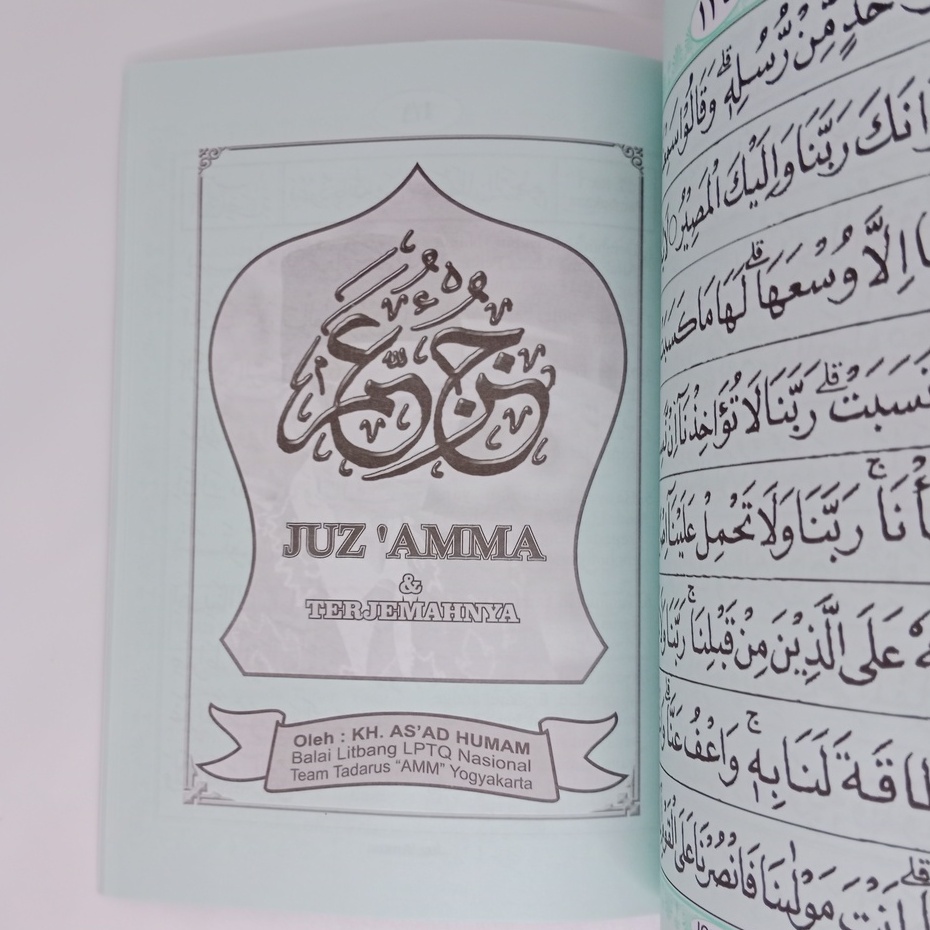 جزء عم
JUZ 'AMMA
&
TERJEMAHNYA
Oleh : KH. AS'AD HUMAM
Balai Litbang LPTQ Nasional
Team Tadarus "AMM" Yogyakarta
مِّنْ رُّسُلِهٖ ۗ وَقَالُوْا
رَبَّنَا وَاِلَيْكَ الْمَصِيْرُ
اِلَّا وُسْعَهَا ۗ لَهَا مَا كَسَبَتْ
رَبَّنَا لَا تُؤَاخِذْنَآ اِنْ
رَبَّنَا وَلَا تَحْمِلْ عَلَيْنَآ
عَلَى الَّذِيْنَ مِنْ قَبْلِنَا ۚ رَبَّنَا
لَنَا بِهٖ ۚ وَاعْفُ عَنَّا
مَوْلٰىنَا فَانْصُرْنَا عَلَى